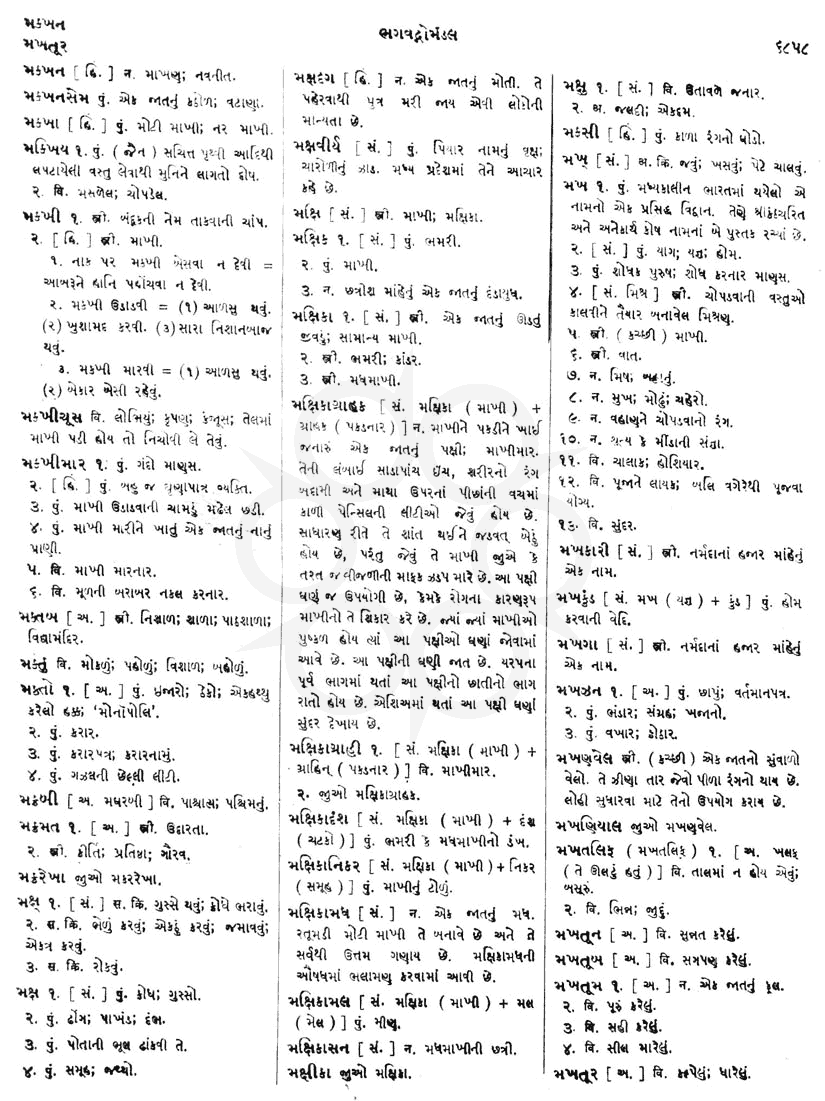 મક્ખન
મખતૂર
ભગવદ્ગોમંડલ
૬૮૫૮
મક્ખન [ હિં. ] ન. માખણ; નવનીત.
મક્ખનસેમ પું. એક જાતનું કઠોળ; વટાણા.
મક્ખા [ હિં. ] પું. મોટી માખી; નર માખી.
મક્ખિય ૧. પું. ( જૈન ) સચિત્ત પૃથ્વી આદિથી
લપટાયેલી વસ્તુ લેવાથી મુનિને લાગતો દોષ.
૨. વિ. મસળેલ; ચોપડેલ.
મક્ખી ૧. સ્ત્રી. બંદૂકની નેમ તાકવાની ચાંપ.
૨. [ હિં. ] સ્ત્રી. માખી.
૧. નાક પર મક્ખી બેસવા ન દેવી =
આબરૂને હાનિ પહોંચવા ન દેવી.
૨. મક્ખી ઉડાડવી = (૧) આળસુ થવું.
(૨) ખુશામદ કરવી. (૩) સારા નિશાનબાજ
થવું.
૩. મક્ખી મારવી = (૧) આળસુ થવું.
(૨) બેકાર બેસી રહેવું.
મક્ખીચૂસ વિ. લોભિયું; કૃપણ; કંજૂસ; તેલમાં
માખી પડી હોય તો નિચોવી લે તેવું.
મક્ખીમાર ૧. પું. ગંદો માણસ.
૨. [ હિં. ] પું. બહુ જ ઘૃણાપાત્ર વ્યક્તિ.
૩. પું. માખી ઉડાડવાની ચામડું મઢેલ છડી.
૪. પું. માખી મારીને ખાતું એક જાતનું નાનું
પ્રાણી.
૫. વિ. માખી મારનાર.
૬. વિ. મૂળની બરાબર નકલ કરનાર.
મક્તબ [ અ. ] સ્ત્રી. નિશાળ; શાળા; પાઠશાળા;
વિદ્યામંદિર.
મક્તું વિ. મોકળું; પહોળું; વિશાળ; બહોળું.
મક્તો ૧. [ અ. ] પું. ઇજારો; ઠેકો; એકહથ્થુ
કરેલો હક્ક; ‘મોનૉપોલિ’.
૨. પું. કરાર.
૩. પું. કરારપત્ર; કરારનામું.
૪. પું. ગઝલની છેલ્લી લીટી.
મક્રબી [ અ. મઘરબી ] વિ. પાશ્ચાત્ય; પશ્ચિમનું.
મક્રમત ૧. [ અ. ] સ્ત્રી. ઉદારતા.
૨. સ્ત્રી. કીર્તિ; પ્રતિષ્ઠા; ગૌરવ.
મક્રરેખા જુઓ મકરરેખા.
મક્ષ્ ૧. [ સં. ] સ. ક્રિ. ગુસ્સે થવું; ક્રોધે ભરાવું.
૨. સ. ક્રિ. ભેળું કરવું; એકઠું કરવું; જમાવવું;
એકત્ર કરવું.
૩. સ. ક્રિ. રોકવું.
મક્ષ ૧. [ સં. ] પું. ક્રોધ; ગુસ્સો.
૨. પું. ઢોંગ; પાખંડ; દંભ.
૩. પું. પોતાની ભૂલ ઢાંકવી તે.
૪. પું. સમૂહ; જથ્થો.
મક્ષદંગ [ હિં. ] ન. એક જાતનું મોતી. તે
પહેરવાથી પુત્ર મરી જાય એવી લોકોની
માન્યતા છે.
મક્ષવીર્ય [ સં. ] પું. પિયાર નામનું વૃક્ષ;
ચારોળીનું ઝાડ. મધ્ય પ્રદેશમાં તેને આચાર
કહે છે.
મક્ષિ [ સં. ] સ્ત્રી. માખી; મક્ષિકા.
મક્ષિક ૧. [ સં. ] પું. ભમરી.
૨. પું. માખી.
૩. ન. છત્રીશ માંહેનું એક જાતનું દંડાયુધ.
મક્ષિકા ૧. [ સં. ] સ્ત્રી. એક જાતનું ઊડતું
જીવડું; સામાન્ય માખી.
૨. સ્ત્રી. ભમરી; કાંડર.
૩. સ્ત્રી. મધમાખી.
મક્ષિકાગ્રાહક [ સં. મક્ષિકા ( માખી ) +
ગ્રાહક ( પકડનાર ) ] ન. માખીને પકડીને ખાઈ
જનારું એક જાતનું પક્ષી; માખીમાર.
તેની લંબાઈ સાડાપાંચ ઇંચ, શરીરનો રંગ
બદામી અને માથા ઉપરનાં પીછાંની વચમાં
કાળી પેન્સિલની લીટીઓ જેવું હોય છે.
સાધારણ રીતે તે શાંત થઈને જડવત્ બેઠું
હોય છે, પરંતુ જેવું તે માખી જુએ કે
તરત જ વીજળીની માફક ઝડપ મારે છે. આ પક્ષી
ઘણું જ ઉપયોગી છે, કેમકે રોગના કારણરૂપ
માખીનો તે શિકાર કરે છે. જ્યાં જ્યાં માખીઓ
પુષ્કળ હોય ત્યાં આ પક્ષીઓ ઘણાં જોવામાં
આવે છે. આ પક્ષીની ઘણી જાત છે. યરપના
પૂર્વ ભાગમાં થતાં આ પક્ષીનો છાતીનો ભાગ
રાતો હોય છે. એશિઅમાં થતાં આ પક્ષી ઘણાં
સુંદર દેખાય છે.
મક્ષિકાગ્રાહી ૧. [ સં. મક્ષિકા ( માખી ) +
ગ્રાહિન્ ( પકડનાર ) ] વિ. માખીમાર.
૨. જુઓ મક્ષિકાગ્રાહક.
મક્ષિકાદંશ [ સં. મક્ષિકા ( માખી ) + દંશ
( ચટકો ) ] પું. ભમરી કે મધમાખીનો ડંખ.
મક્ષિકાનિકર [ સં. મક્ષિકા ( માખી ) + નિકર
( સમૂહ ) ] પું. માખીનું ટોળું.
મક્ષિકામધ [ સં. ] ન. એક જાતનું મધ.
રતૂમડી મોટી માખી તે બનાવે છે અને તે
સર્વથી ઉત્તમ ગણાય છે. મક્ષિકામધની
ઔષધમાં ભલામણ કરવામાં આવી છે.
મક્ષિકામલ [ સં. મક્ષિકા ( માખી ) + મલ
( મેલ ) ] પું. મીણ.
મક્ષિકાસન [ સં. ] ન. મધમાખીની છત્રી.
મક્ષીકા જુઓ મક્ષિકા.
મક્ષુ ૧. [ સં. ] વિ. ઉતાવળે જનાર.
૨. અ. જલદી; એકદમ.
મક્સી [ હિં. ] પું. કાળા રંગનો ઘોડો.
મખ્ [ સં. ] અ. ક્રિ. જવું; ખસવું; પેટે ચાલવું.
મખ ૧. પું. મધ્યકાલીન ભારતમાં થયેલો એ
નામનો એક પ્રસિદ્ધ વિદ્વાન. તેણે શ્રીકંઠચરિત
અને અનેકાર્થ કોષ નામનાં બે પુસ્તક રચ્યાં છે.
૨. [ સં. ] પું. યાગ; યજ્ઞ; હોમ.
૩. પું. શોધક પુરુષ; શોધ કરનાર માણસ.
૪. [ સં. મિશ્ર ] સ્ત્રી. ચોપડવાની વસ્તુઓ
કાલવીને તૈયાર બનાવેલ મિશ્રણ.
૫. સ્ત્રી. ( કચ્છી ) માખી.
૬. સ્ત્રી. વાત.
૭. ન. મિષ; બહાનું.
૮. ન. મુખ; મોઢું; ચહેરો.
૯. ન. વહાણને ચોપડવાનો રંગ.
૧૦. ન. શૂન્ય કે મીંડાની સંજ્ઞા.
૧૧. વિ. ચાલાક; હોશિયાર.
૧૨. વિ. પૂજાને લાયક; બલિ વગેરેથી પૂજવા
યોગ્ય.
૧૩. વિ. સુંદર.
મખકારી [ સં. ] સ્ત્રી. નર્મદાનાં હજાર માંહેનું
એક નામ.
મખકુંડ [ સં. મખ ( યજ્ઞ ) + કુંડ ] પું. હોમ
કરવાની વેદિ.
મખગા [ સં. ] સ્ત્રી. નર્મદાનાં હજાર માંહેનું
એક નામ.
મખઝન ૧. [ અ. ] પું. છાપું; વર્તમાનપત્ર.
૨. પું. ભંડાર; સંગ્રહ; ખજાનો.
૩. પું. વખાર; કોઠાર.
મખણવેલ સ્ત્રી. ( કચ્છી ) એક જાતનો સુંવાળો
વેલો. તે ઝીણા તાર જેવો પીળા રંગનો થાય છે.
લોહી સુધારવા માટે તેનો ઉપયોગ કરાય છે.
મખણિયાલ જુઓ મખણવેલ.
મખતલિફ ( મખતલિફ્ ) ૧. [ અ. ખલફ
( તે ઊલટું હતું ) ] વિ. તાલમાં ન હોય એવું;
બસૂરું.
૨. વિ. ભિન્ન; જુદું.
મખતૂન [ અ. ] વિ. સુન્નત કરેલું.
મખતૂબ [ અ. ] વિ. સગપણ કરેલું.
મખતૂમ ૧. [ અ. ] ન. એક જાતનું ફૂલ.
૨. વિ. પૂરું કરેલું.
૩. વિ. સહી કરેલું.
૪. વિ. સીલ મારેલું.
મખતૂર [ અ. ] વિ. કલ્પેલું; ધારેલું.